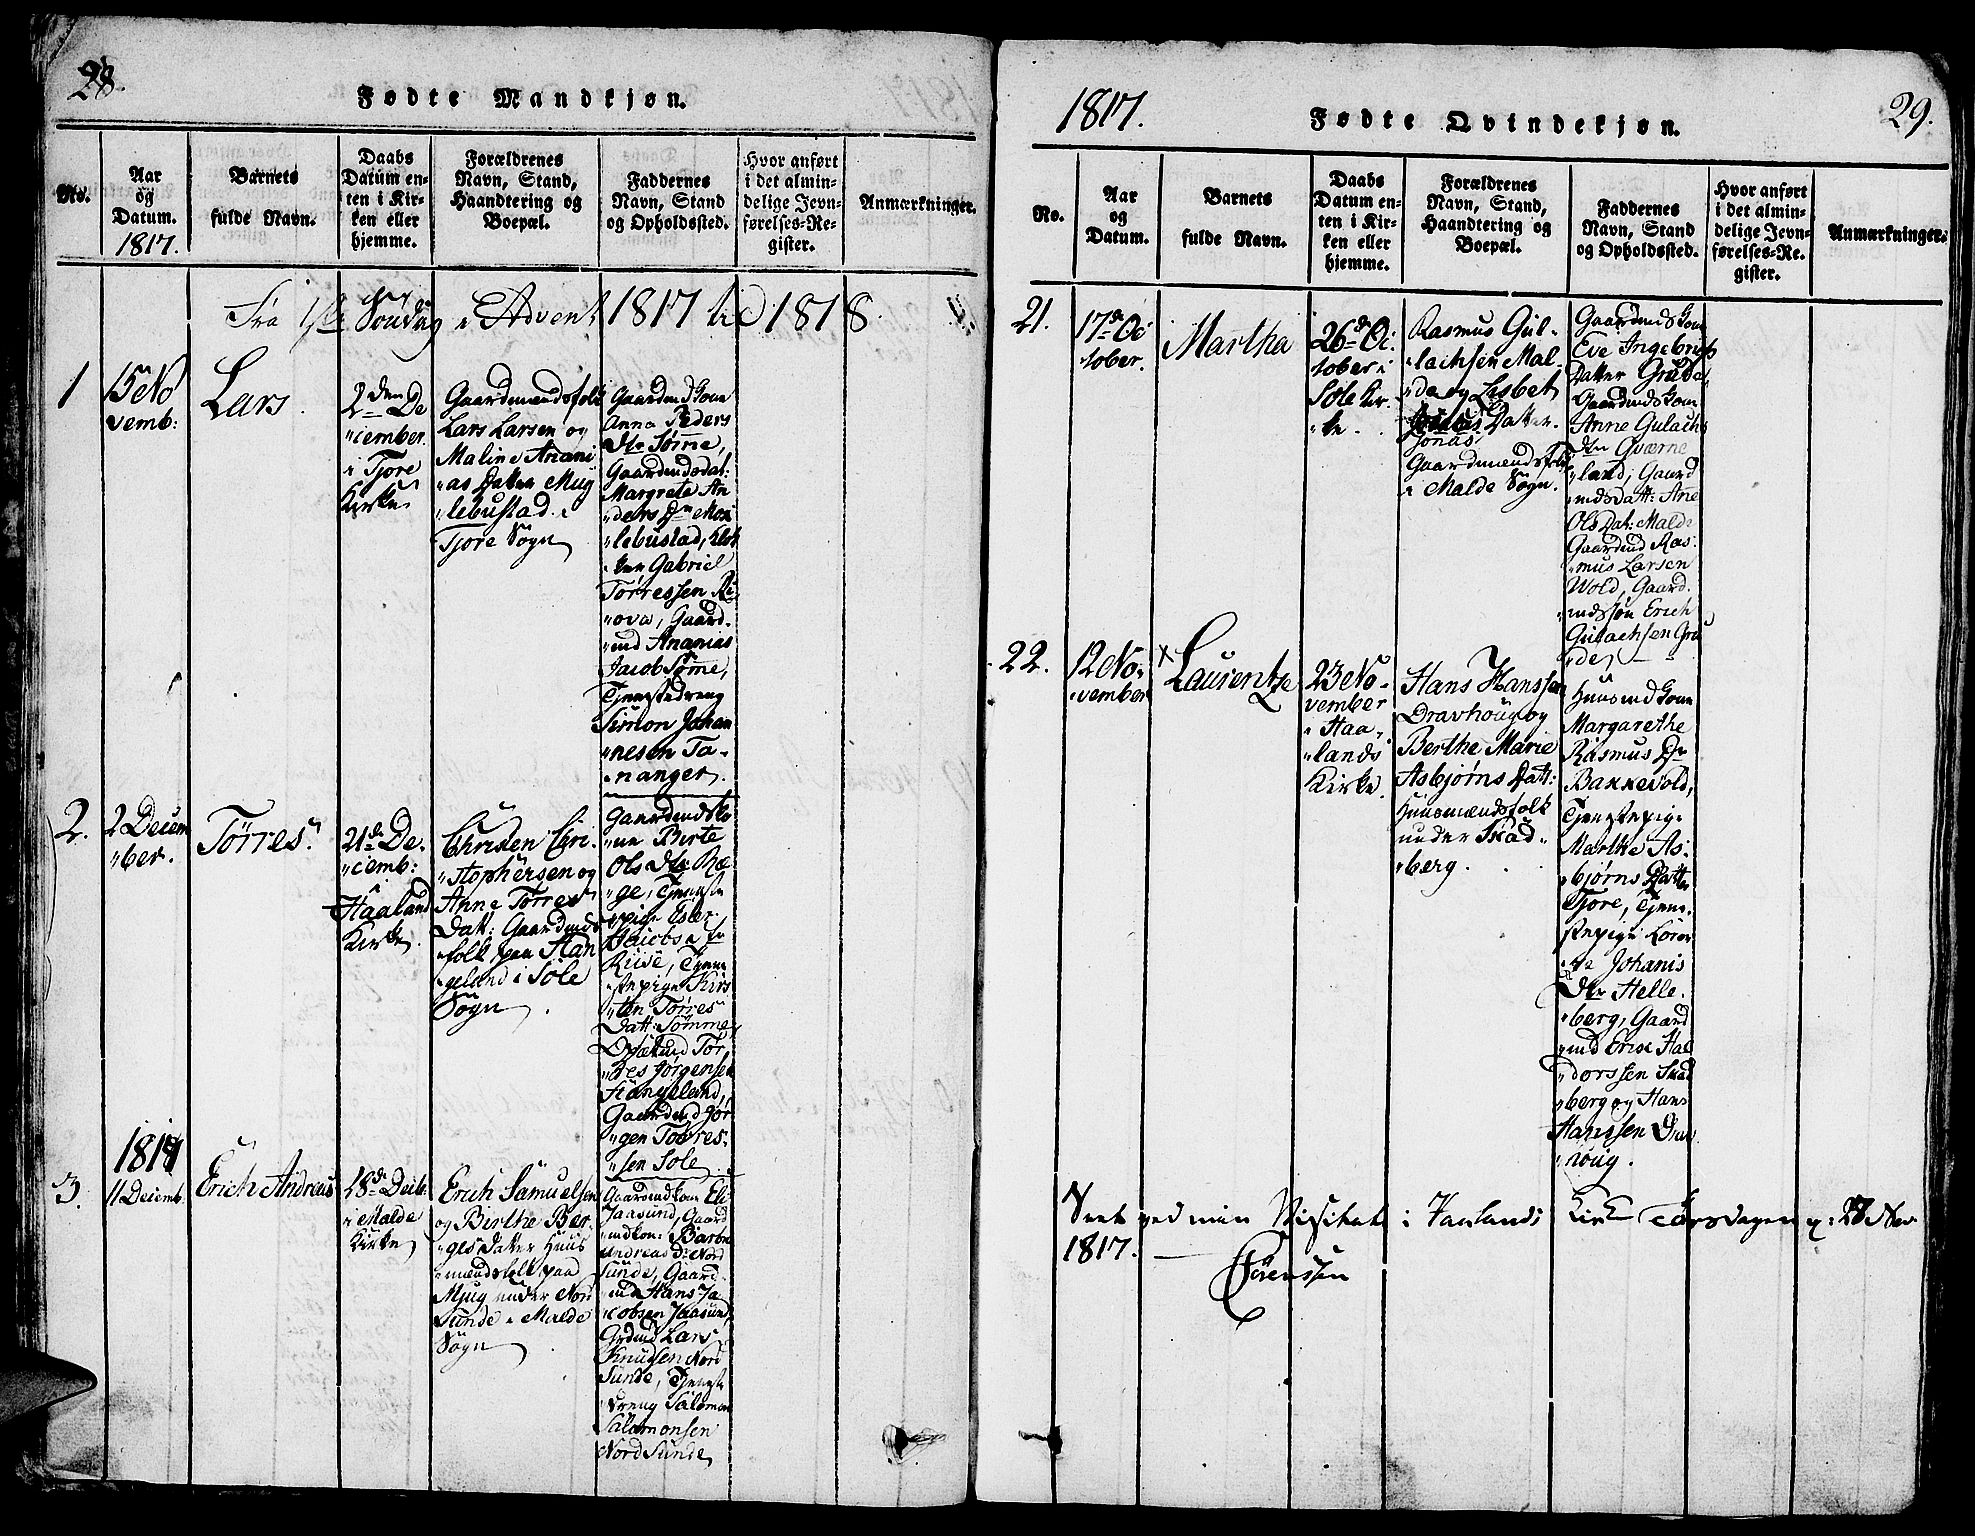 28.
Fødte Mandkjøn.
No.
Aar
og
Datum.
1817.
Barnets
fulde Navn.
Daabs
Datum en-
ten i Kir-
ken eller
hjemme.
Forældrenes
Navn, Stand,
Haandtering og
Boepæl.
Faddernes
Navn, Stand
og Opholdssted.
Hvor anført
i det almin-
delige Jevn-
førelses-Re-
gister.
Anmærkninger.
Fra 1ste Søndag i Advent 1817 til 1818.
1
15 No
vemb:
Lars
2den De
"cember
i Tjore
Kirke
Gaardmændsfolk
Lars Larsen og
Maline Anani
"as Datter Myg
"lebustad i
Tjore Sogn
Gaardmdskone
Anna Peders
Dtr Sømme,
Gaardmdsdat:
Margrete An
"ders Dtr
"lebustad, Klok
"ker Gabriel
Tørressen
"ova, Gaard-
"md Ananias
Jacobs Sømme,
Tjenestedreng
Simon Johan
"nesen Ta-
"nanger.
2.
2 Decem
"ber.
Tørres.
21de De-
"cemb:
i
Haaland
Kirke
Christen Chri-
"stophersen og
Anne Tørres
Datt: Gaardmænds
"folk paa Stan
"geland i Sole
Sogn
Gaardmdsko
"ne Birte
Ols Dtr Ræ
"ge, Tjeneste
"pige Ester
Jacobs
Riise, Tjene
"stepige Kirs
"ten Tørres
Datt: Sømme,
Tør
"res Jørgensen
Stangeland,
Gaardmd Jør
"gen Tørres-
"sen Sole
3.
1817
11 Decemb.
Erich Andreas
28de Decbr.
i Malde
Kirke
Erich Samuelsen
og Birthe Ber-
"ges Datter Huus
"mændsfolk paa
Myug under Nord
Sunde i Malde
Sogn
Gaardmdkone Eli
Jaasund, Gaard
"mdkon: Barbro
Andreas Dr Nord
Sunde, Gaard-
"md Hans Ja
"cobsen Jaasund,
Grdmd Lars
Knudsen Nord
Sunde, Tjeneste
"dreng Salomon
Salomonsen
Nord Sunde
1817.
Fødte Qvindekjøn.
29.
No.
Aar
og
Datum.
Barnets
fulde Navn.
Daabs
Datum en-
ten i Kir-
ken eller
hjemme.
Forældrenes
Navn, Stand,
Haandtering og
Boepæl.
Faddernes
Navn, Stand
og Opholdssted.
Hvor anført
i det almin-
delige Jevn-
førelses-Re-
gister.
Anmærkninger.
21.
17de Oc
tober.
Martha
26de Oc-
tober i
Sole Kir-
"ke.
Rasmus Gul-
"lachsen Mal-
"de og Lisbet
Jonas Datter.
Gaardmændsfolk
i Malde Sogn.
Gaardmdskone
Eve Ingebrets
Datter Grude,
Gaardmdskone
Anne Gulachs
Dtr Qværne
"land, Gaard
"mdsdatt: Ane
Ols Dat: Malde
Gaardmd Ras-
"mus Larsen
Wold, Gaard-
"mdssøn Erich
Gulachsen Gru
"de,
22.
12 No-
"vember
x
Laurentze
23 No-
vember
i Haa-
"lands
Kirke
Hans Hanssen
Dravhoug og
Berthe Marie
Asbjørns Datt:
Huusmændsfolk
under Skad-
"berg.
Huusmdkone
Margarethe
Rasmus Dr
Bakkevold,
Tjenstepige
Marthe As-
"bjørns Datter
Tjore, Tjene-
stepige
Johanis
Dtr Helle-
"berg, Gaard
"md Erik Hal
"dorssen Skad
"berg og Hans
Hanssen Drav
"houg.
Seet ved min Visitats i Haalands Kirke Torsdagen d: 27 Nov.
1817.
Sørenssen